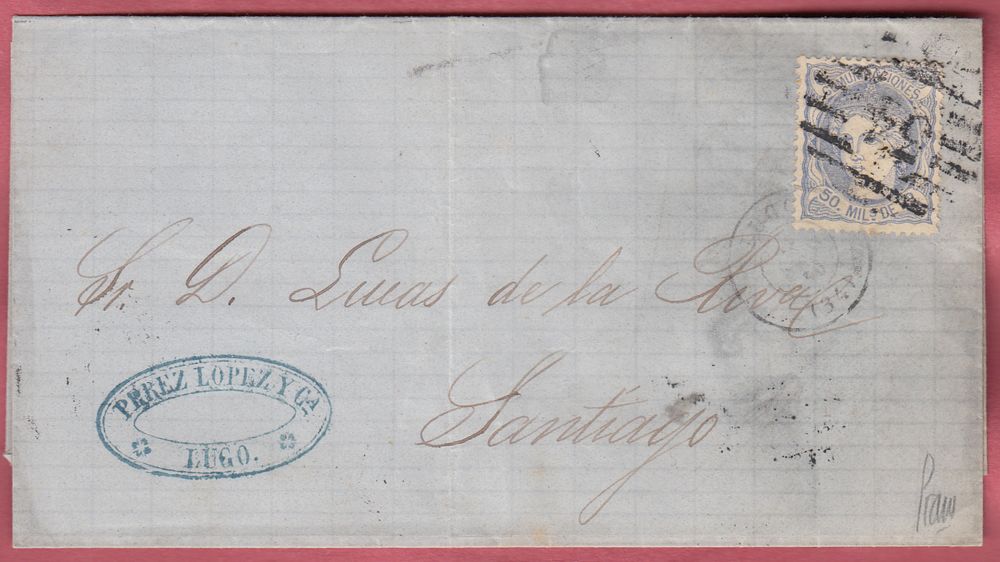 COMUNICACIONES
50. MILS DE
Sr. D. Lucas de la Riva
Santiago
PEREZ LOPEZ Y CA
LUGO.